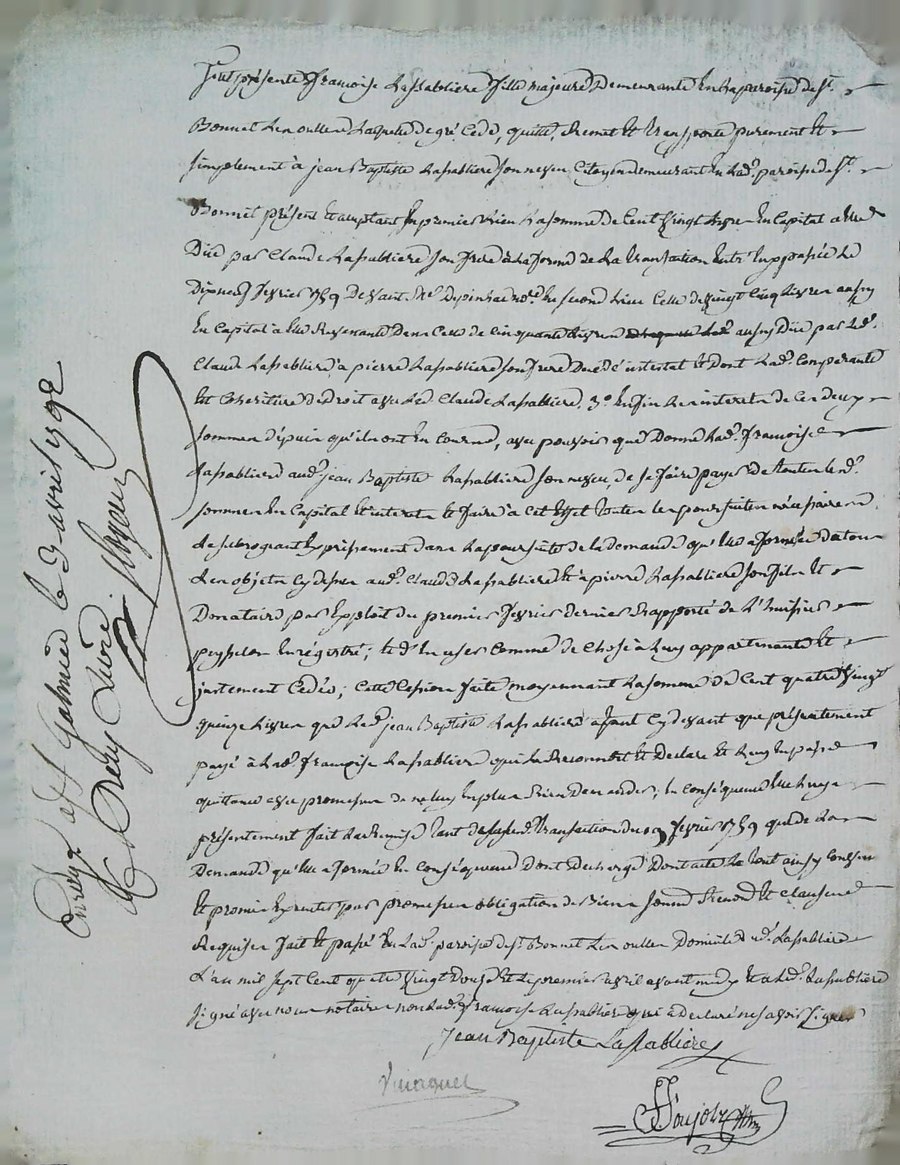 fut présente françoise Lasablière fille majeure Demeurante En la paroisse de St.
Bonnet Les oulles Laquelle de gré Cede, quitte, Remet Et transporte purement Et
simplement à jean Baptiste Lasablière son neveu Citoyen demeurant En lad. paroisse de St.
Bonnet présent Et acceptant En premier Lieu La somme de Cent vingt Livres En Capital a elle
Düe par Claude Lasabliere son frere à la forme de La transaction Entr'eux passée Le
Dix neuf fevrier 1759 Devant Me Depinhac nore. En second Lieu Celle de vingt Cinq Livres aussy
En Capital a elle Revenante Dans Celle de Cinquante Livres aussy Düe par Led.
Claude Lasabliere à pierre Lasabliere son frere Decédé intestat Et Dont Lad. Comparante
Est Coheritiere de Droit avec Led Claude Lasabliere. 3º Enfin Les interets de Ces deux
sommes depuis qu'ils ont En Cours, avec pouvoir que Donne Lad. françoise
Lasabliere aud. jean Baptiste Lasabliere son neveu, de se faire payer de toutes Lesd.
sommes En Capital Et interets Et faire à Cet Effet toutes Les poursuites nécessaires
Le subrogeant Expressement dans La poursuite de la demande qu'elle a formée
des objets Cy dessus aud. Claude Lasabliere Et à pierre Lasabliere son fils Et
Donataire par Exploit du premier fevrier dernier Rapporté de L'huissier
peysselon Enregistré; Et d'En user Comme de Chose à Luy appartenante Et
justement Cedée; Cette Cession faite moyennant La somme De Cent quatre vingt
quinze Livres que Led. jean Baptiste Lasabliere a tant Cy devant que présentement
payé à Lad. françoise Lasabliere qui Le Reconnoit Et Declare Et Luy En passe
quittance avec promesse de ne luy En plus Rien Demander; En Conséquence Elle luy a
présentement fait La Remise tant de Lad. transaction du 19 fevrier 1759 que de La
Demande qu'elle a formée En Conséquence Dont Decharge Dont acte Le tout ainsy Convenu
Et promis Executer par promesses obligation de Biens soumis Renond. Et clauses
Requises fait Et passé En Lad. paroisse de St. Bonnet Les oulles Domicile d. Lasabliere
L'an mil sept Cent quatre vingt Douze Et Le premier avril avant midy Et a Led. Lasabliere
signé avec nous notaire non Lad. françoise Lasabliere qui a declaré ne savoir signer
Jean Baptiste Lasablière
Viuaquel
Enreg. a St Galmier le 3 avril 1792